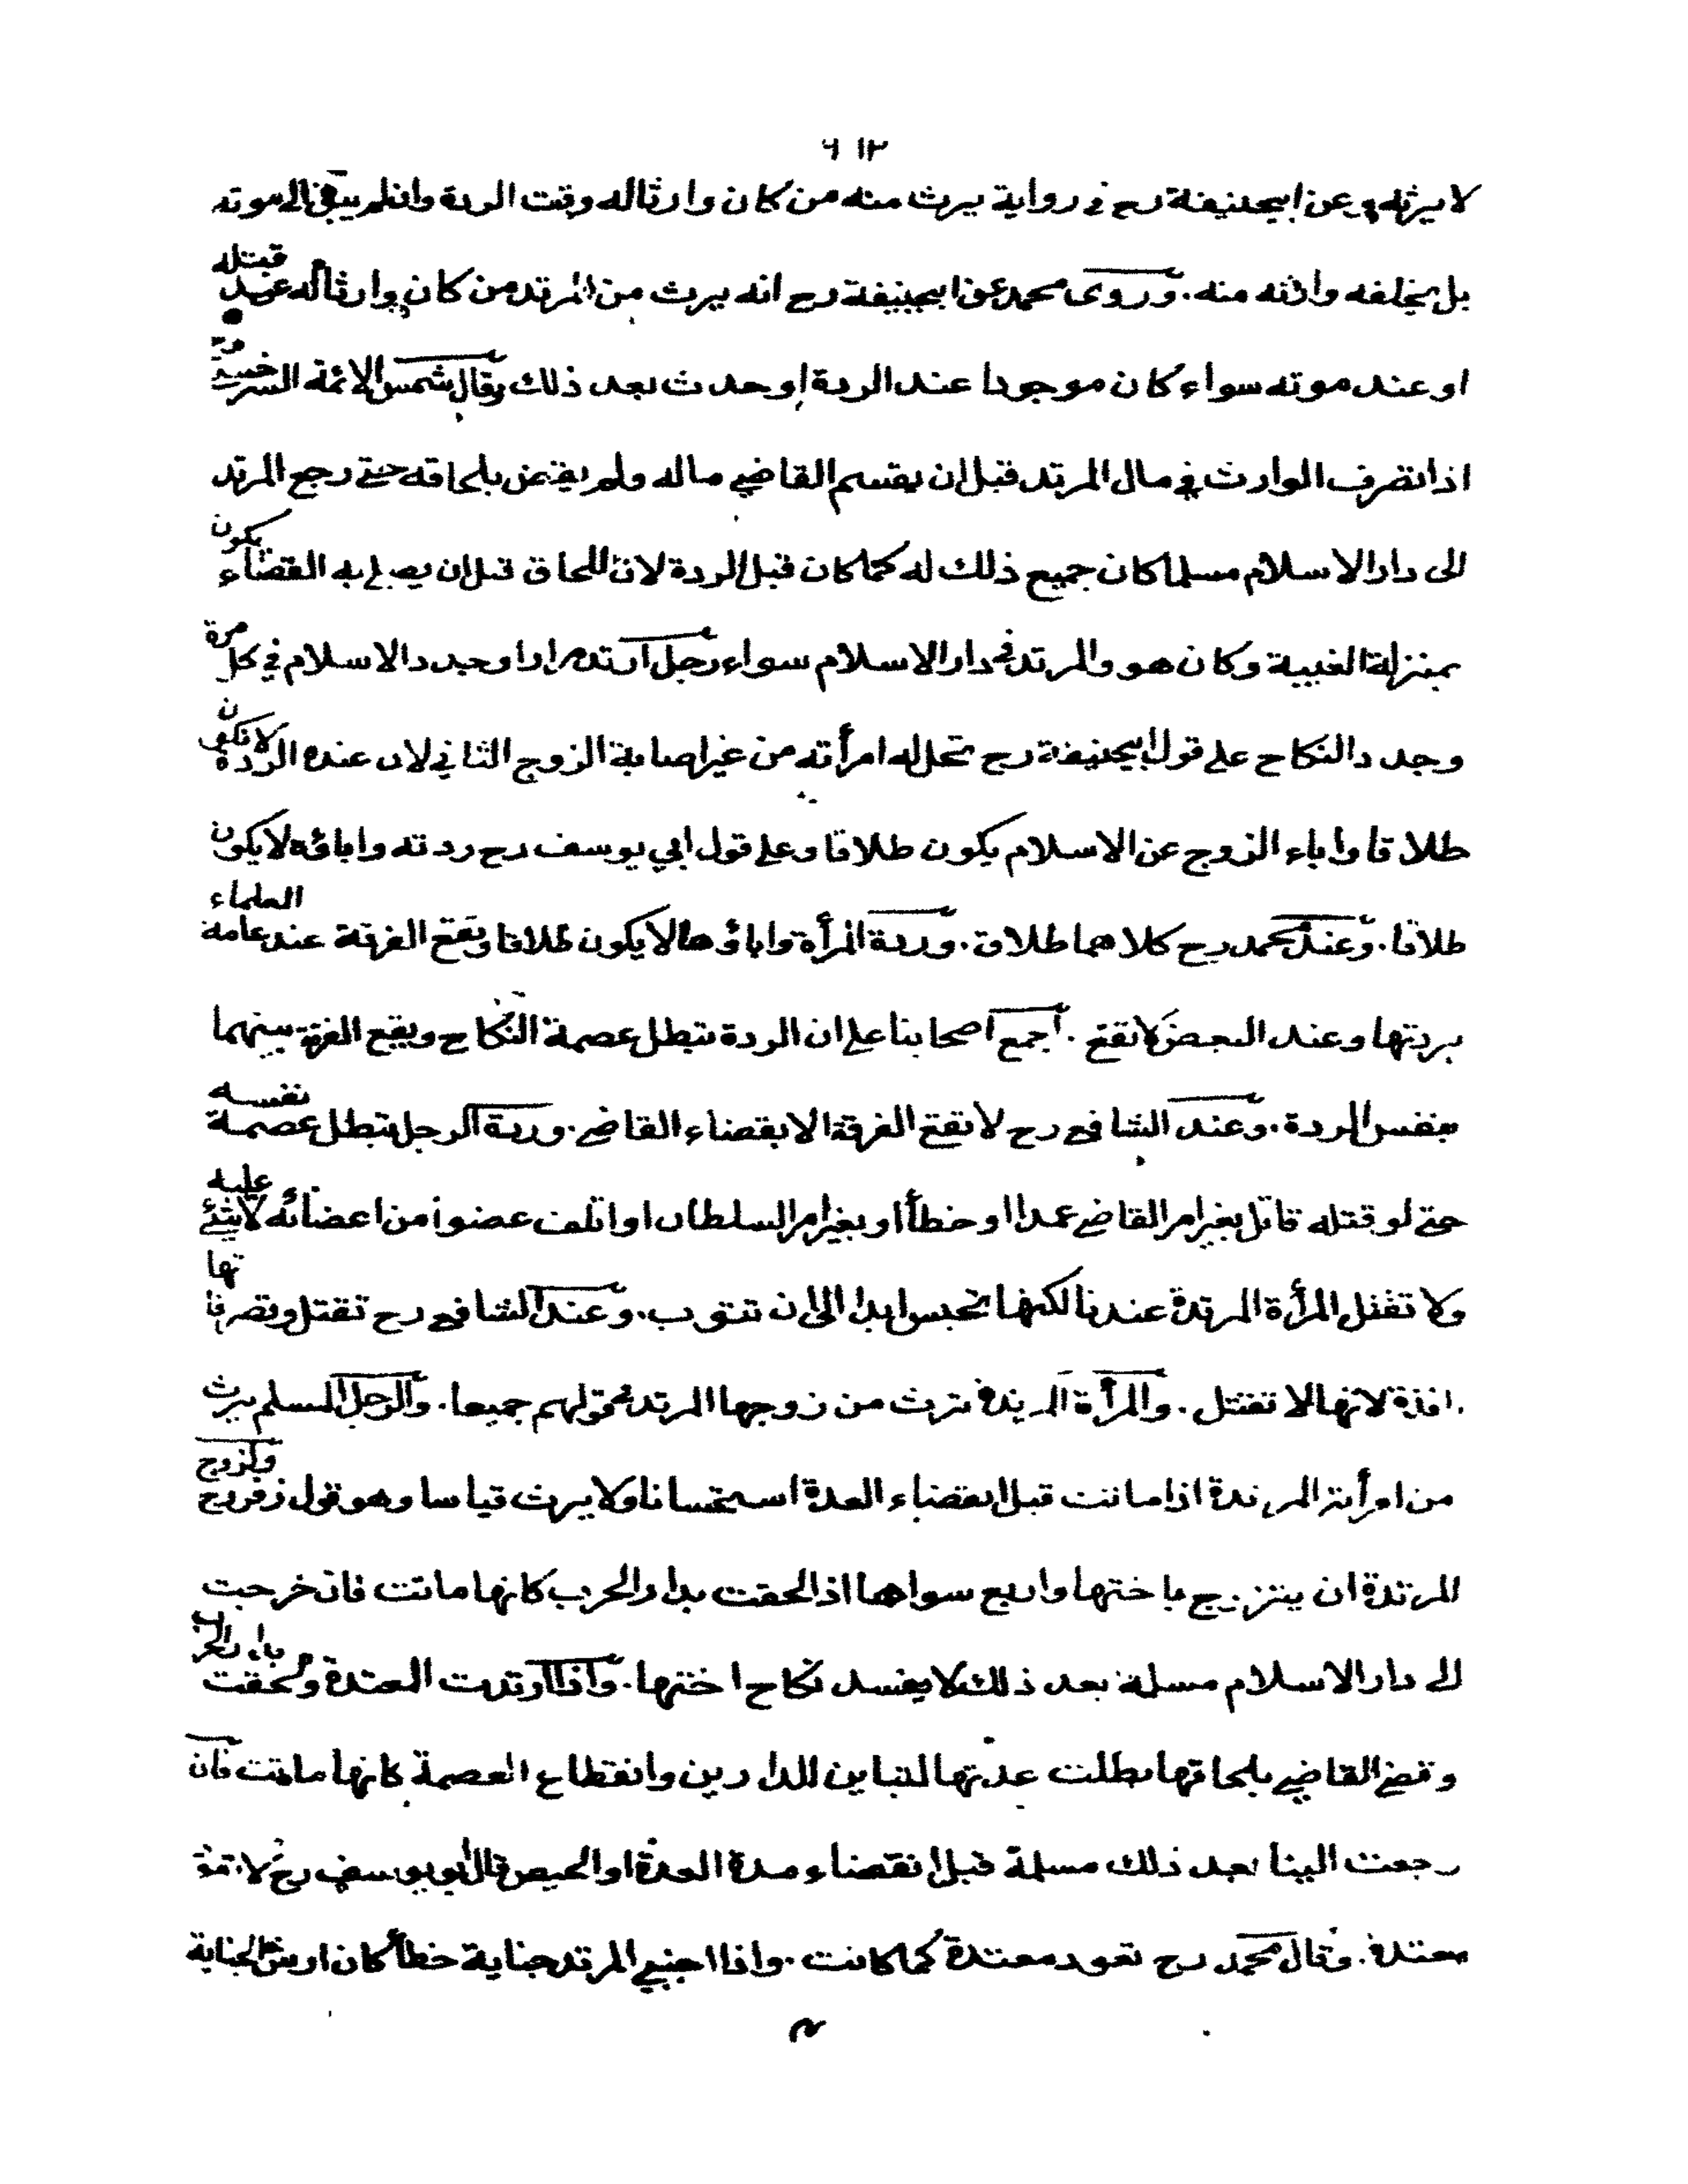 ٦١٣
لا يرثه وعن ابيحنيفة رح في رواية يرث منه من كان وارثاله وقت الردة وان لم يبق الى موته
بل يخلفه وارثه منه. وروى محمد عن ابيحنيفة رح انه يرث من المرتد من كان وارثاله عند قتله
او عند موته سواء كان موجودا عند الردة او حدث بعد ذلك وقال شمس الائمة السرخسي رح
اذا تصرف الوارث في مال المرتد قبل ان يقسم القاضي ماله ولم يقض بلحاقه حتى رجع المرتد
الى دار الاسلام مسلما كان جميع ذلك له كما كان قبل الردة لان اللحاق قبل ان يصل به القضاء يكون
بمنزلة الغيبة وكان هو والمرتد في دار الاسلام سواء رجل ارتد مرارا وجدد الاسلام في كل مرة
وجدد النكاح على قول ابيحنيفة رح تحل له امرأته من غير اصابة الزوج الثاني لان عنده الردة لا تكون
طلاقا واباء الزوج عن الاسلام يكون طلاقا وعلى قول ابي يوسف رح ردته واباؤه لا يكون
طلاقا. وعند محمد رح كلاهما طلاق. وردة المرأة واباؤها لا يكون طلاقا وتقع الفرقة عند عامة العلماء
بردتها وعند البعض لا تقع. اجمع اصحابنا على ان الردة تبطل عصمة النكاح ويقع الفرقة بينهما
بنفس الردة. وعند الشافعي رح لا تقع الفرقة الا بقضاء القاضي. وردة الرجل تبطل عصمة نفسه
حتى لو قتله قاتل بغير امر القاضي عمدا او خطأ او بغير امر السلطان او اتلف عضوا من اعضائه لا شئ عليه
ولا تقتل المرأة المرتدة عندنا لكنها تحبس ابدا الى ان تتوب. وعند الشافعي رح تقتل وتصرفاتها
نافذة لانها لا تقتل. والمرأة المرتدة ترث من زوجها المرتد في قولهم جميعا. والرجل المسلم يرث
من امرأته المرتدة اذا ماتت قبل انقضاء العدة استحسانا ولا يرث قياسا وهو قول زفر رح ولزوج
المرتدة ان يتزوج باختها واربع سواها اذا لحقت بدار الحرب كانها ماتت فان خرجت
الى دار الاسلام مسلمة بعد ذلك لا يفسد نكاح اختها. واذا ارتدت المعتدة ولحقت بدار الحرب
وقضى القاضي بلحاقها بطلت عدتها لتباين الدارين وانقطاع العصمة كانها ماتت فان
رجعت الينا بعد ذلك مسلمة قبل انقضاء مدة العدة او الحيض قال ابو يوسف رح لا تعود
معتدة. وقال محمد رح تعود معتدة كما كانت. واذا جنى المرتد جناية خطأ كان ارش الجناية